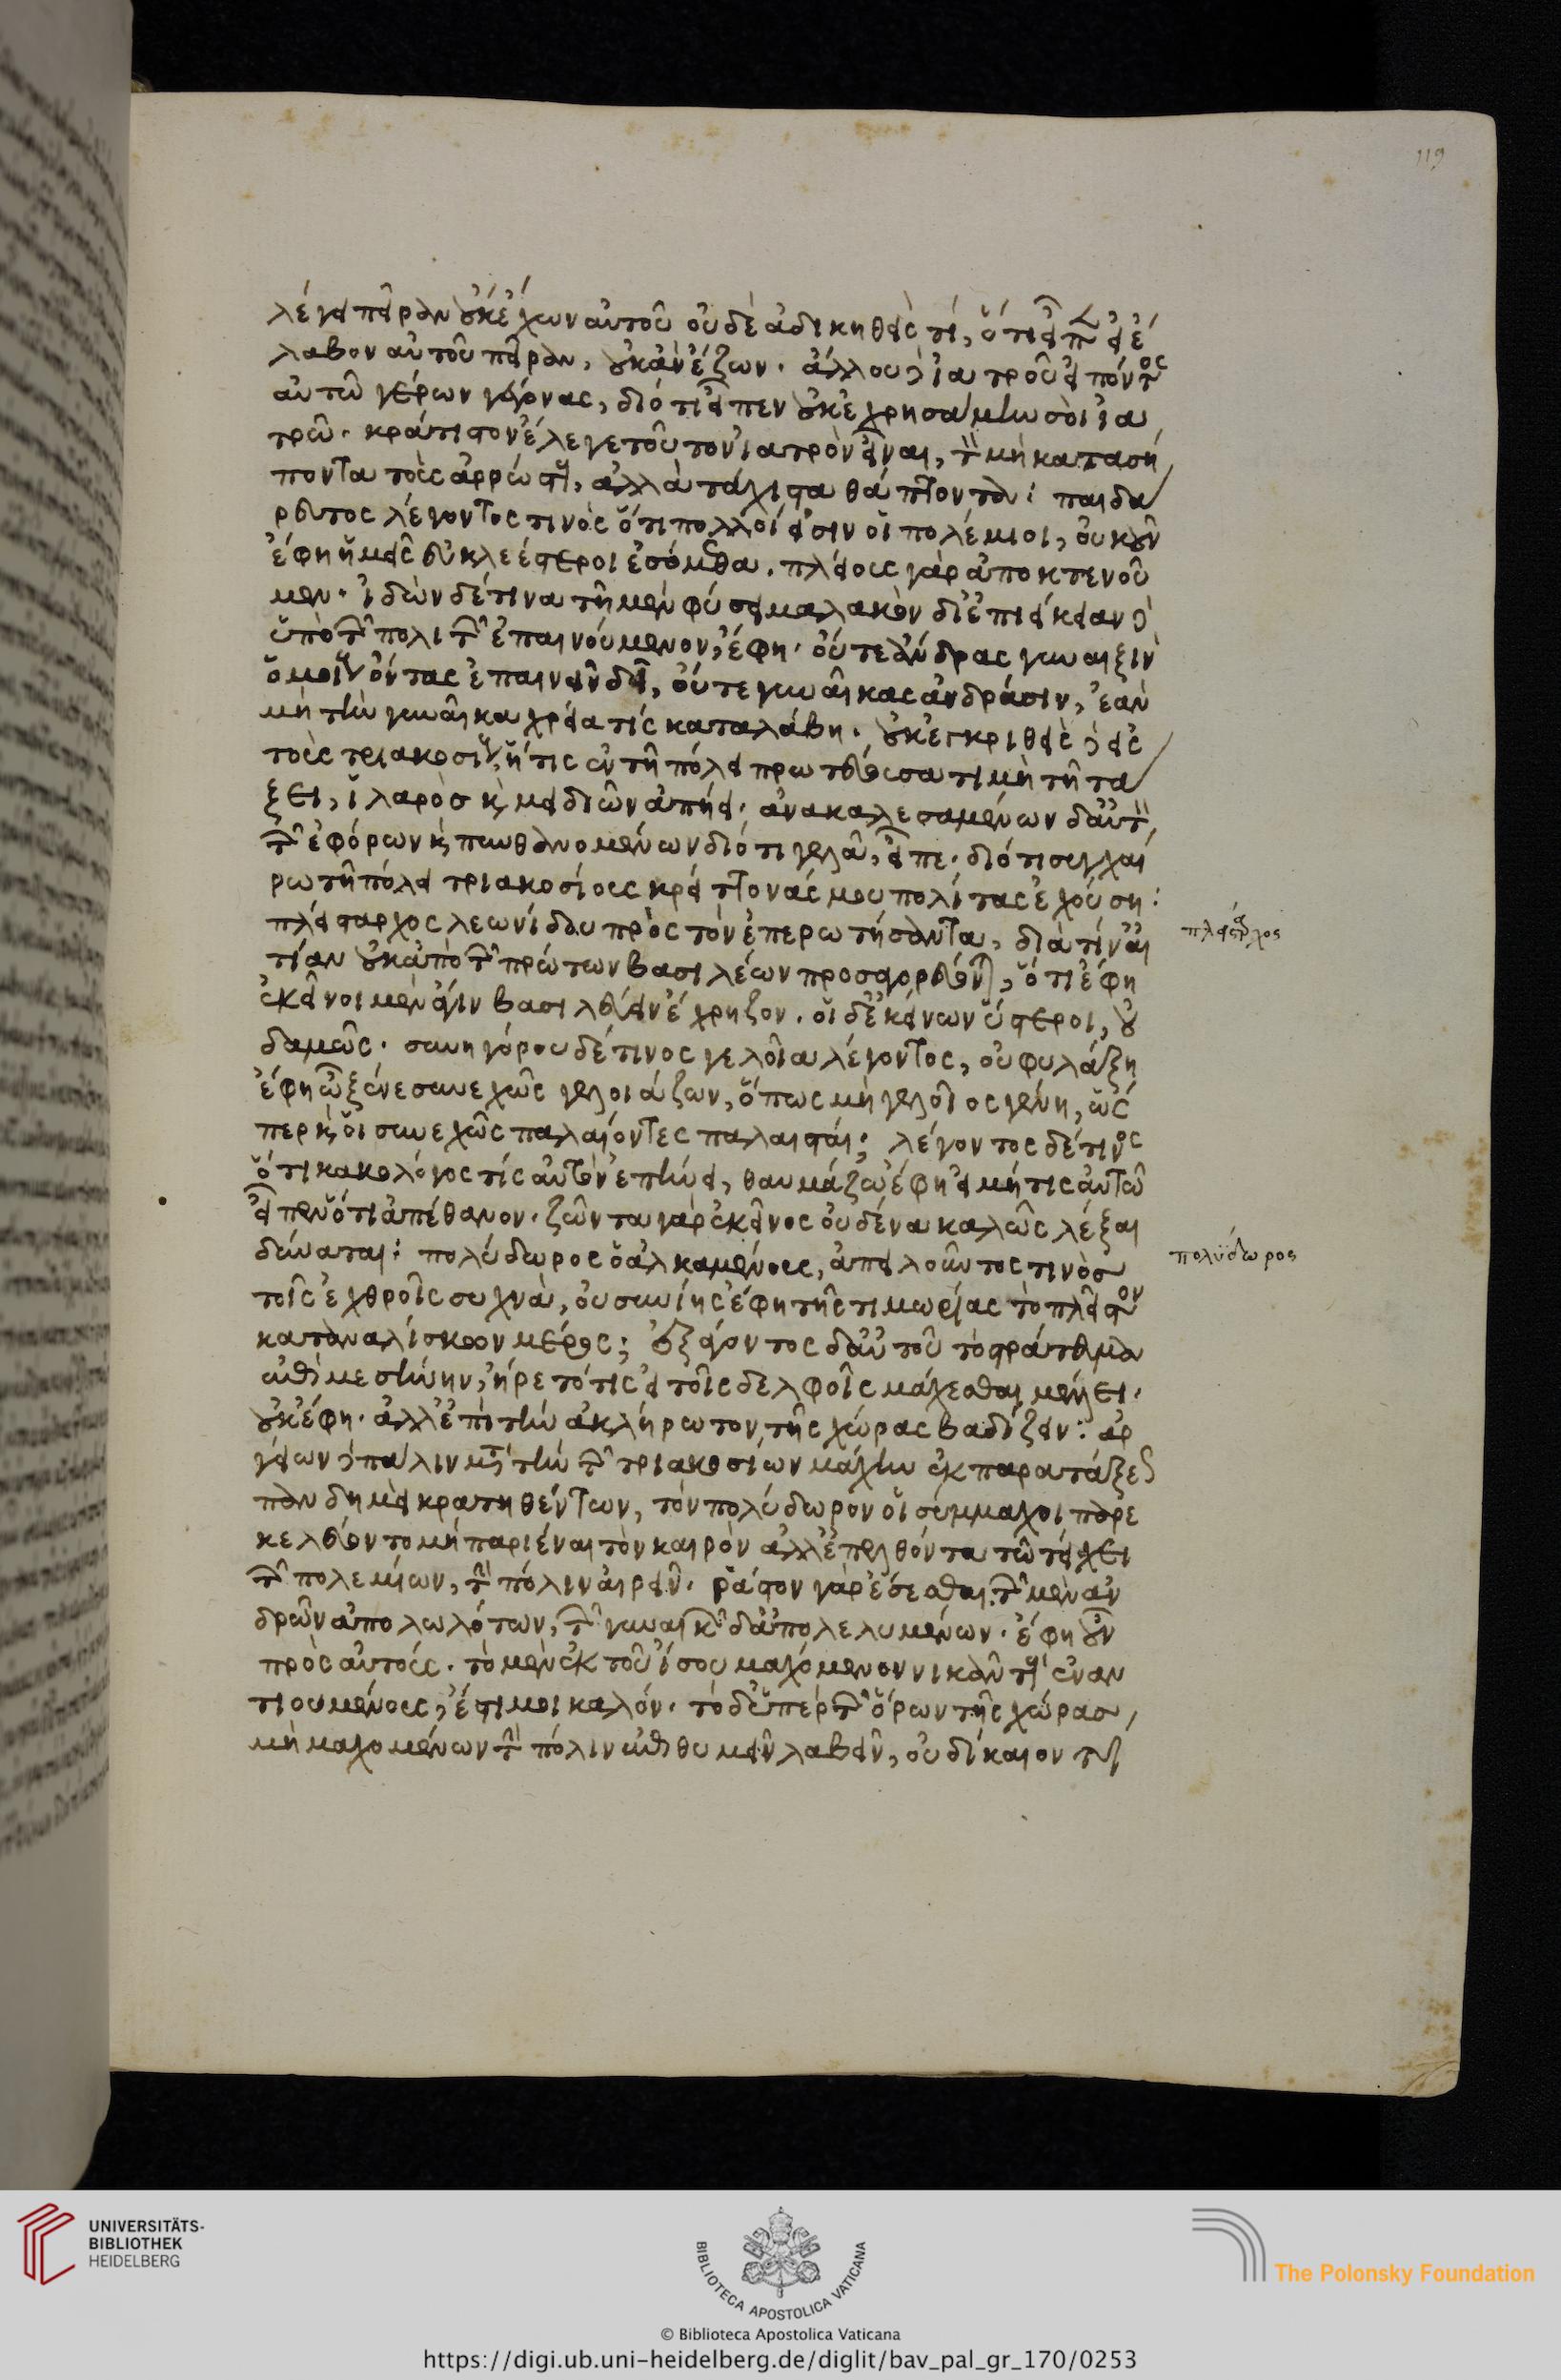 119
λέγει πεῖραν οὐκ ἔχων αὐτοῦ οὐδὲ ἀδικηθείς τι, ὅτι εἶπεν εἰ ἔ
λαβον αὐτοῦ πεῖραν, οὐκ ἂν ἔζων. ἄλλου δὲ ἰατροῦ εἰπόντος
αὐτῶ γέρων γέγονας, διότι εἶπεν οὐκ ἐχρησάμην σοι ἰα
τρῶ. κράτιστον ἔλεγε τοῦτον ἰατρὸν εἶναι, τὸν μὴ κατασή
ποντα τοὺς ἀρρώστους, ἀλλὰ τάχιστα θάπτοντα: παιδά
ρευτος λέγοντος τινὸς ὅτι πολλοί εἰσιν οἱ πολέμιοι, οὐκοῦν
ἔφη ἡμεῖς εὐκλεέστεροι ἐσόμεθα. πλείους γὰρ ἀποκτενοῦ
μεν. ἰδὼν δέ τινα τῆ μὲν φύσει μαλακὸν δι' ἐπιείκειαν δὲ
ὑπὸ τῶν πολιτῶν ἐπαινούμενον, ἔφη. οὔτε ἄνδρας γυναιξὶν
ὁμοίους ὄντας ἐπαινεῖν δεῖ, οὔτε γυναῖκας ἀνδράσιν, ἐὰν
μὴ τὴν γυναῖκα χρεία τίς καταλάβη. οὐκ ἐγκριθεὶς δὲ εἰς
τοὺς τριακοσίους, ἥτις ἐν τῆ πόλει πρωτεύουσα τιμὴ τῆ τά
ξει, ἱλαρὸσ καὶ μειδιῶν ἀπήει. ἀνακαλεσαμένων δ' αὐτὸν
τῶν ἐφόρων καὶ πυνθανομένων διότι γελᾶ, εἶπε. διότι συγχαί
ρω τῆ πόλει τριακοσίους κρείττονάς μου πολίτας ἐχούση:
πλείσταρχος λεωνίδου πρὸς τὸν ἐπερωτήσαντα, διὰ τίν' αἰ
τίαν οὐκ ἀπὸ τῶν πρώτων βασιλέων προσαγορεύονται, ὅτι ἔφη
ἐκεῖνοι μὲν ἄγειν βασιλεύειν ἔχρηζον. οἱ δ' ἐκείνων ὕστεροι, οὐ
δαμῶς. συνηγόρου δέ τινος γελοῖα λέγοντος, οὐ φυλάξη
ἔφη ὦ ξένε συνεχῶς γελοιάζων, ὅπως μὴ γελοῖος γένη, ὥς
περ καὶ οἱ συνεχῶς παλαίοντες παλαισταί; λέγοντος δέ τινος
ὅτι κακολόγος τίς αὐτὸν ἐπήνει, θαυμάζω ἔφη εἰ μή τις αὐτῶ
εἶπεν ὅτι ἀπέθανον. ζῶντα γὰρ ἐκεῖνος οὐδένα καλῶς λέξαι
δύναται: πολύδωρος ὁ ἀλκαμένους, ἀπειλοῦντος τινὸσ
τοῖς ἐχθροῖς συχνὰ, οὐ συνίης ἔφη τῆς τιμωρίας τὸ πλεῖστον
καταναλίσκων μέρος; ἐξάγοντος δ' αὐτοῦ τὸ στράτευμα
ἐπὶ μεσήνην, ἤρετό τις εἰ τοῖς δελφοῖς μάχεσθαι μέλλει.
οὐκ ἔφη. ἀλλ' ἐπὶ τὴν ἀκλήρωτον τῆς χώρας βαδίζειν: ἀρ
γείων δὲ πάλιν μετὰ τὴν τῶν τριακοσίων μάχην ἐκ παρατάξεως
πανδημεὶ κρατηθέντων, τὸν πολύδωρον οἱ σύμμαχοι παρε
κελεύοντο μὴ παριέναι τὸν καιρὸν ἀλλ' ἐπελθόντα τῶ τείχει
τῶν πολεμίων, τὴν πόλιν αἱρεῖν. ῥᾷστον γὰρ ἔσεσθαι τῶν μὲν ἀν
δρῶν ἀπολωλότων, τῶν γυναικῶν δ' ἀπολελυμένων. ἔφη οὖν
πρὸς αὐτούς. τὸ μὲν ἐκ τοῦ ἴσου μαχόμενον νικᾶν τοὺς ἐναν
τιουμένους, ἔστι μοι καλόν. τὸ δ' ὑπὲρ τῶν ὅρων τῆς χώρασ
μὴ μαχομένων τὴν πόλιν ἐπιθυμεῖν λαβεῖν, οὐ δίκαιον
πλείσταρχος
πολύδωρος
UNIVERSITÄTS-
BIBLIOTHEK
HEIDELBERG
BIBLIOTECA APOSTOLICA VATICANA
The Polonsky Foundation
© Biblioteca Apostolica Vaticana
https://digi.ub.uni-heidelberg.de/diglit/bav_pal_gr_170/0253